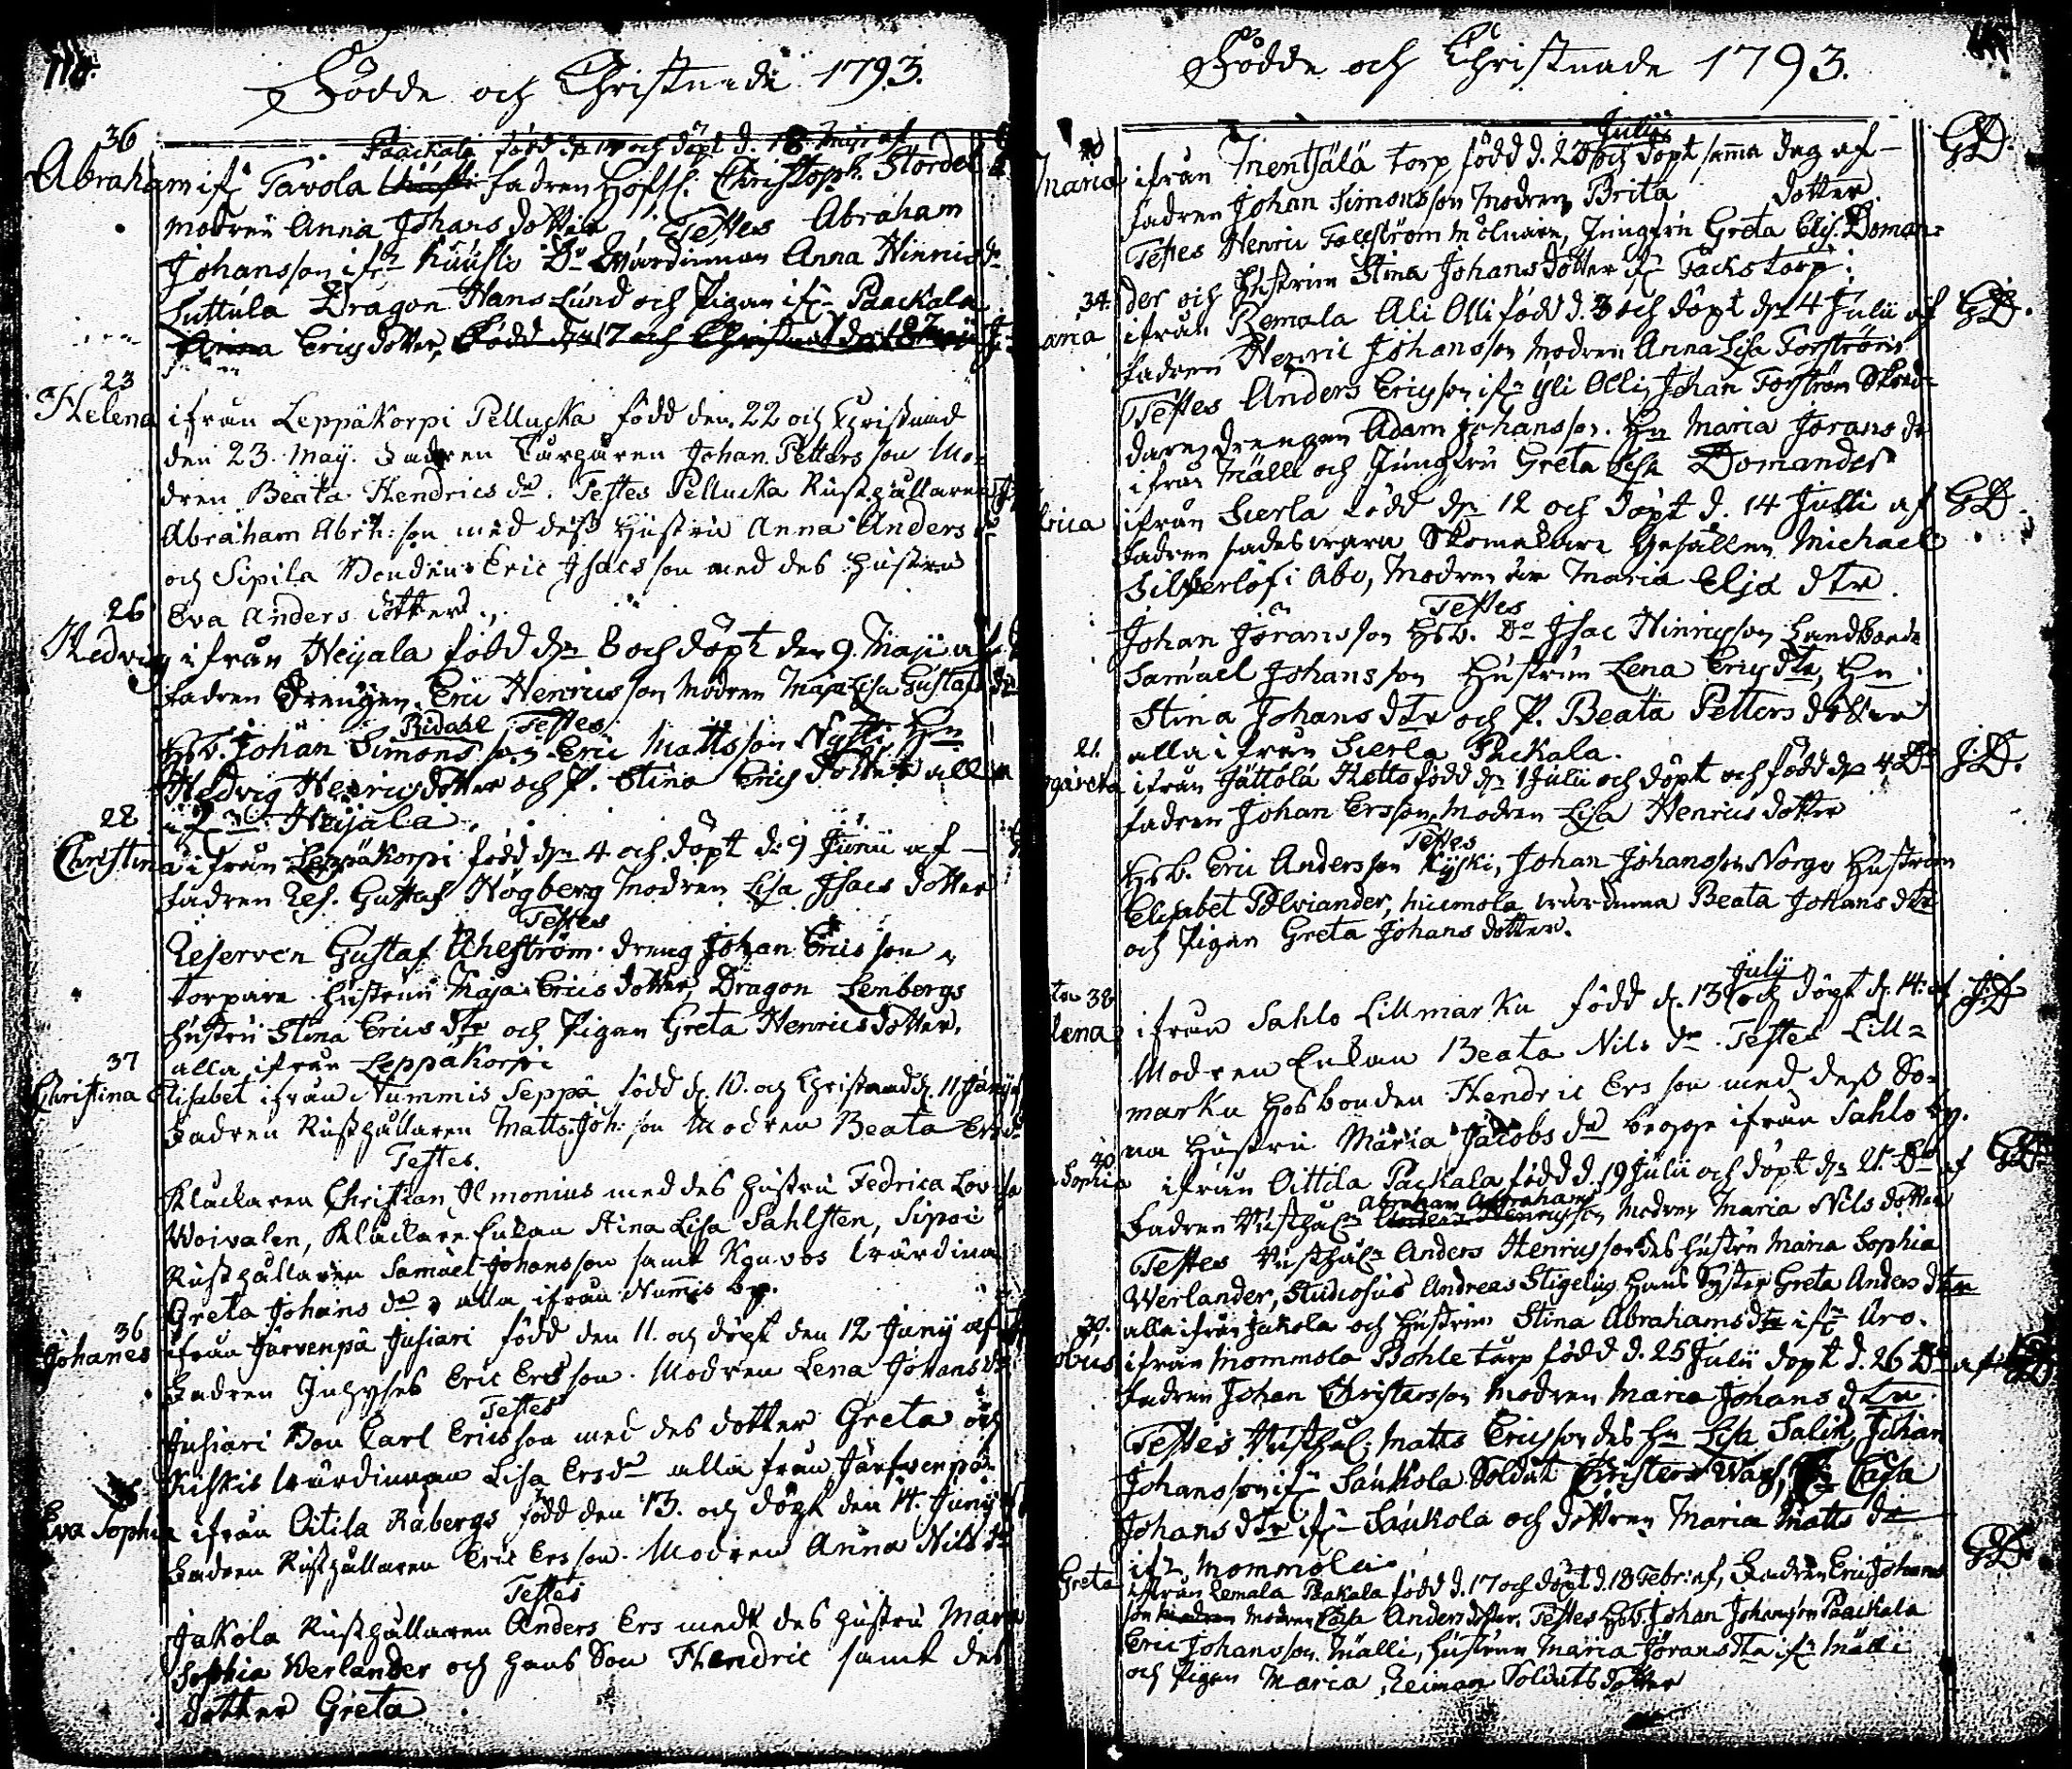 Födde och Christnade 1793.
36
Paackala född d. 17 och döpt d. 18 Maji af
Abraham ifr Tavola Fadren Hofsl. Christoph. Stördel
modren Anna Johans dotter Testes Abraham
Johansson ifrn Kuusti Do Wärdinnan Anna Hinrics dr
Suttula Dragon Hans Lund och Pigan ifr Paackala
Anna Erics dotter, Född den 17 och Christnad den 18 Maji
23
Helena ifrån Leppäkorpi Pellucka född den 22 och Christnad
den 23 May. Fadren Torparen Johan Petters son Mo-
dren Beata Hendrics dr. Testes Pellucka Rusthållaren
Abraham Abrh: son med dess Hustru Anna Anders dr
och Sipila Bonden Eric Isacs son med des Hustru
Eva Anders dotter.
26
Hedvig ifrån Heijala född den 8 och döpt den 9. Maji af
Fadren Drengen Eric Henrics son Modren Maja Lisa Gustafs dr
Testes
Hsb. Johan Simons son Eric Mattsson Nysti Hn
Hedvig Henrics dotter och P. Stina Erics dotter alla
ifrn Heijala.
28
Christina ifrån Leppäkorpi född den 4 och döpt d. 9 Junii af
Fadren Res. Gustaf Högberg Modren Lisa Isacs dotter
Testes
Reserven Gustaf Ahlström dreng Johan Erics son
torpare Hustrun Maja Erics dotter Dragon Lenbergs
hustru Stina Erics dtr och Pigan Greta Henrics dotter.
alla ifrån Leppäkorpi
37
Christina Elisabet ifrån Nummis Seppä född d. 10. och Christnad d. 11 Junij
Fadren Rusthållaren Matts Joh: son Modren Beata Ersdr
Testes.
Kluckaren Christian Ilmonius med des hustru Fedrica Lovisa
Woivalen, Kluckare Enkan Stina Lisa Sahlsten, Sipoi
Rusthållaren Samuel Johansson samt Wärdinan
Greta Johans dr alla ifrån Nummis by.
36
Johanes ifrån Järvenpä Jusiari född den 11. och döpt den 12 Junij af
Fadren Inhyses Eric Ers son. Modren Lena Johans dr
Testes
Jusiari Bon Carl Ericsson med des dotter Greta och
Kiskis Wärdinnan Lisa Ersdr alla från Järfvenpä
Eva Sophia ifrån Oitila Råbergs född den 13. och döpt den 14. Junij
Fadren Rusthållaren Eric Ers son. Modren Anna Nils dr
Testes
Jakola Rusthållaren Anders Ers med des hustru Maria
Sophia Werlander och hans Son Hendric samt des
dotter Greta
Födde och Christnade 1793.
Julii
ifrån Mentsälä torp född d. 23 och döpt samma dag af GD.
Fadren Johan Simonsson Modren Brita dotter
Testes Henric Molnare, Jungfru Greta Elis. Doman-
der och Hustrun Stina Johans dotter ifr Backs torp.
34
ifrån Remala Ali Olli född d. 3 och döpt den 4 Julii af GD.
Fadren Henric Johansson Modren Anna Lisa Forström.
Testes Anders Ericsson ifrn Yli Olli, Johan Forström Skred-
dare, drengen Adam Johansson. Hn Maria Jörans dr
ifrån Mälli och Jungfru Greta Lisa Domander
ifrån Sierla född den 12 och döpt d. 14 Julii af GD.
Fadren Skomakare Gesällen Michael
Silfverlöf i Abo, Modren Maria Elja dtr.
Testes
Johan Jöransson Hsb. Do Isac Hinricsson Landbonde
Samuel Johansson Hustrun Lena Erics dtr, Hn
Stina Johans dtr och P. Beata Petters dotter
alla ifrån Sierla Packala.
21.
ifrån Jättölä Ketto född den 1 Julii och döpt och född den 4 Do JD.
Fadren Johan Ersson, Modren Lisa Henrics dotter
Testes
Hsb. Eric Andersson Kyski, Johan Johansson Norgo Hustrun
Elisabet Polviander, wärdinna Beata Johans dtr
och Pigan Greta Johans dotter.
38
July
ifrån Sahlo Lillmarku född d. 13 och döpt d. 14. af JD
Modren Enkan Beata Nils dr. Testes Lill-
marku Hosbonden Hendric Ers son med dess So-
na Hustru Maria Jacobs dr begge ifrån Sahlo by.
40
Sophia ifrån Oittila Packala född d. 19 Julii och döpt den 21. Do af GD.
Abraham Abrahams
Fadren Rusthåln Anders Henricsson Modren Maria Nils dotter
Testes Rusthåln Anders Henricsson des Hustru Maria Sophia
Werlander, Studiosus Andreas Stigelius Hans Syster Greta Anders dtr
alla ifrån Jakola och Hustrun Stina Abrahams dtr ifrn Aro.
30.
ifrån Mommola Bohle torp född d. 25 Julii döpt d. 26 Do af GD
Fadren Johan Christersson Modren Maria Johans dtr
Testes Rusthål: Matts Ericsson des Hn Lisa Salin, Johan
Johansson ifr Saukola Soldat Christer Caisa
Johans dtr ifr Saukola och dottren Maria Matts dr
ifr Mommola
Greta ifrån Remala Paakala född d. 17 och döpt d. 18 Febr: af, Fadren Eric Johans GD.
son Modren Caisa Anders dotter. Testes Hsb. Johan Johansson Paackala
Eric Johansson Mälli, Hustrun Maria Jörans dtr ifr Mälli
och Pigan Maria Reiman Soldats dotter